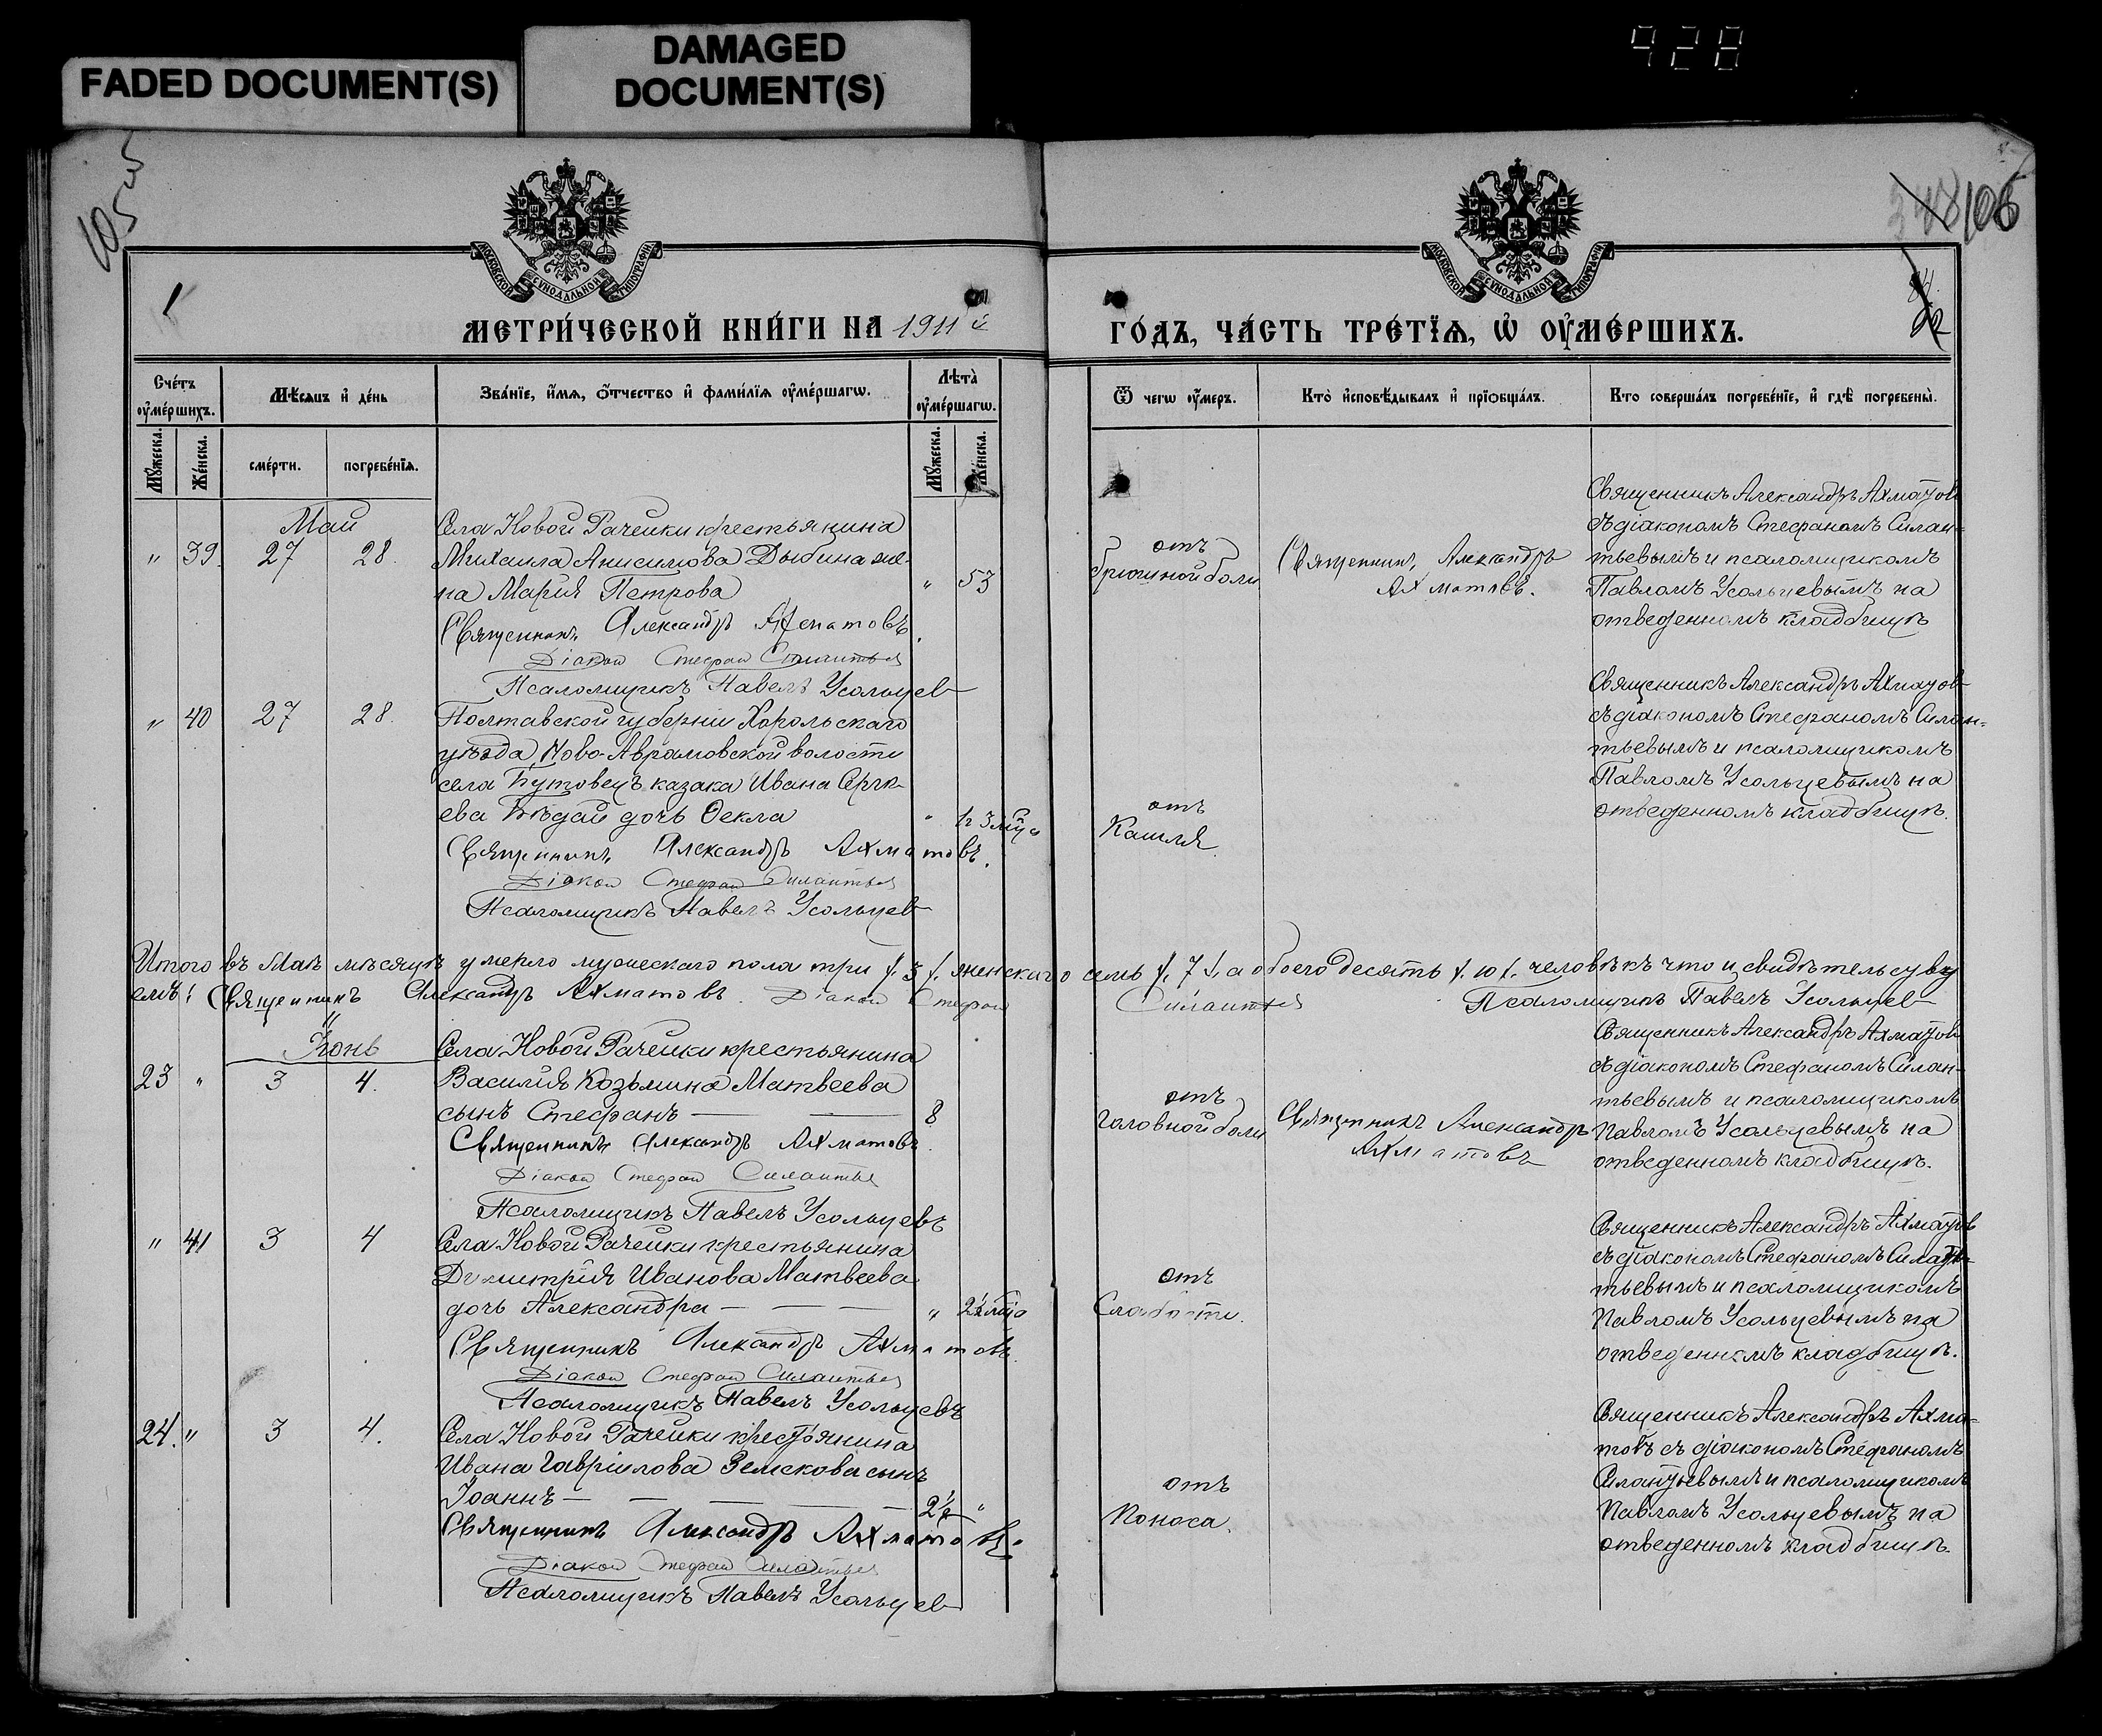 FADED DOCUMENT(S)
DAMAGED
DOCUMENT(S)
928
105
106
МЕТРИ́ЧЕСКОЙ КНИ́ГИ НА 1911й
ГО́ДЪ, ЧА́СТЬ ТРЕ́ТЇѦ, Ѡ҆ ОУ҆МЕ́РШИХЪ.
Сче́тъ оу҆ме́ршихъ.
Мꙋ́жеска.
Же́нска.
Мѣ́сѧцъ и҆ де́нь
сме́рти.
погребе́нїѧ.
Зва́нїе, и҆́мѧ, ѻ҆́тчество и҆ фами́лїѧ оу҆ме́ршагѡ.
Лѣ̀та оу҆ме́ршагѡ.
Мꙋ́жеска.
Же́нска.
Ѿ чегѡ̀ оу҆́меръ.
Кто̀ и҆сповѣ́дывалъ и҆ прїѡбща́лъ.
Кто̀ соверша́лъ погребе́нїе, и҆ гдѣ̀ погребены̀.
Май
" 39. 27 28.
Села Новой Рачейки крестьянина
Михаила Анисимова Дыбина же-
на Марія Петрова " 53
Священникъ Александръ Ахматовъ.
Діакон Стефан Силантьев
Псаломщикъ Павелъ Усольцев
отъ
брюшной боли
Священникъ Александръ
Ахматовъ.
Священникъ Александръ Ахматов
съ діакономъ Стефаномъ Силан=
тьевымъ и псаломщикомъ
Павломъ Усольцевымъ на
отведенномъ кладбищѣ
" 40 27 28.
Полтавской губерніи Хорольскаго
уѣзда, Ново-Аврамовской волости
села Бутовецъ казака Ивана Сергѣ-
ева дочь Ѳекла
Священникъ Александръ Ахматовъ.
Діакон Стефан Силантьев
Псаломщикъ Павелъ Усольцев
отъ
Кашля.
Священникъ Александръ Ахматов
съ діакономъ Стефаномъ Силан=
тьевымъ и псаломщикомъ
Павломъ Усольцевымъ на
отведенномъ кладбищѣ.
Итого въ Маѣ мѣсяцѣ умерло мужескаго пола три /.3/. женскаго семь /.7/. а обоего десять /.10/. человѣкъ что и свидѣтельству
емъ: Священникъ Александръ Ахматовъ. Діакон Стефан Силантьев Псаломщикъ Павелъ Усольцев
Іюнь
23 " 3 4.
Села Новой Рачейки крестьянина
Василія Козьмина Матвеева
сынъ Стефанъ — — 8
Священникъ Александръ Ахматовъ.
Діакон Стефан Силантьев
Псаломщикъ Павелъ Усольцевъ
отъ
Головной боли
Священникъ Александръ
Ахматовъ
Священникъ Александръ Ахматов
съ діакономъ Стефаномъ Силан-
тьевымъ и псаломщикомъ
Павломъ Усольцевымъ на
отведенномъ кладбищѣ.
" 41 3 4
Села Новой Рачейки крестьянина
Димитрія Иванова Матвеева
дочь Александра — — —
Священникъ Александръ Ахматовъ.
Діакон Стефан Силантьев
Псаломщикъ Павелъ Усольцевъ
отъ
Слабости.
Священникъ Александръ Ахматов
съ діакономъ Стефаномъ Силан-
тьевымъ и псаломщикомъ
Павломъ Усольцевымъ на
отведенномъ кладбищѣ.
24. " 3 4.
Села Новой Рачейки крестьянина
Ивана Гавріилова Земскова сынъ
Іоаннъ — — — — 2½ "
Священникъ Александръ Ахматовъ.
Діакон Стефан Силантьев
Псаломщикъ Павелъ Усольцев
отъ
Поноса.
Священникъ Александръ Ахма-
товъ съ діакономъ Стефаномъ
Силантьевымъ и псаломщикомъ
Павломъ Усольцевымъ на
отведенномъ кладбищѣ.